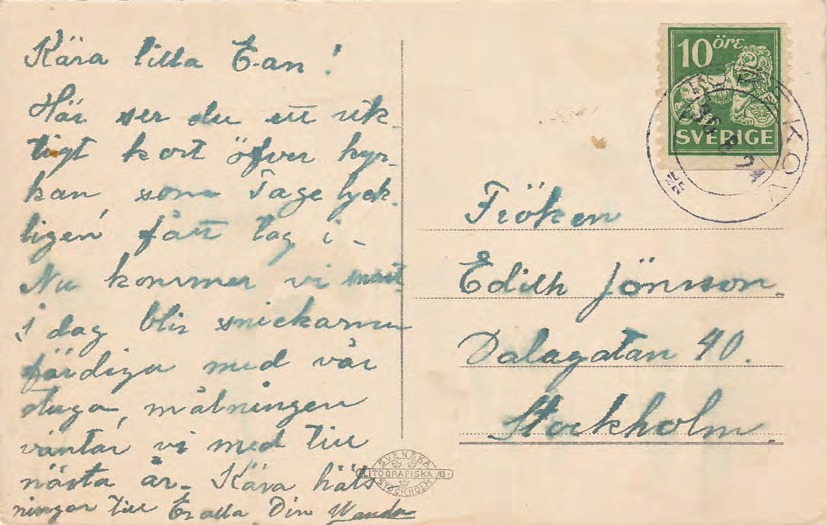 Kära lilla E-an!
Här ser du ett rik-
tigt kort öfver kyr-
kan, som Tage lyck-
ligen fått tag i -
Nu kommer vi snart
i dag blir snickarna
färdiga med vår
stuga, målningen
väntar vi med till
nästa år. Kära häls
ningar till Er alla Din Wanda
10 öre
SVERIGE
Fröken
Edith Jönsson.
Dalagatan 40.
Stockholm.
SVENSKA
LITOGRAFISKA A.B.
STOCKHOLM